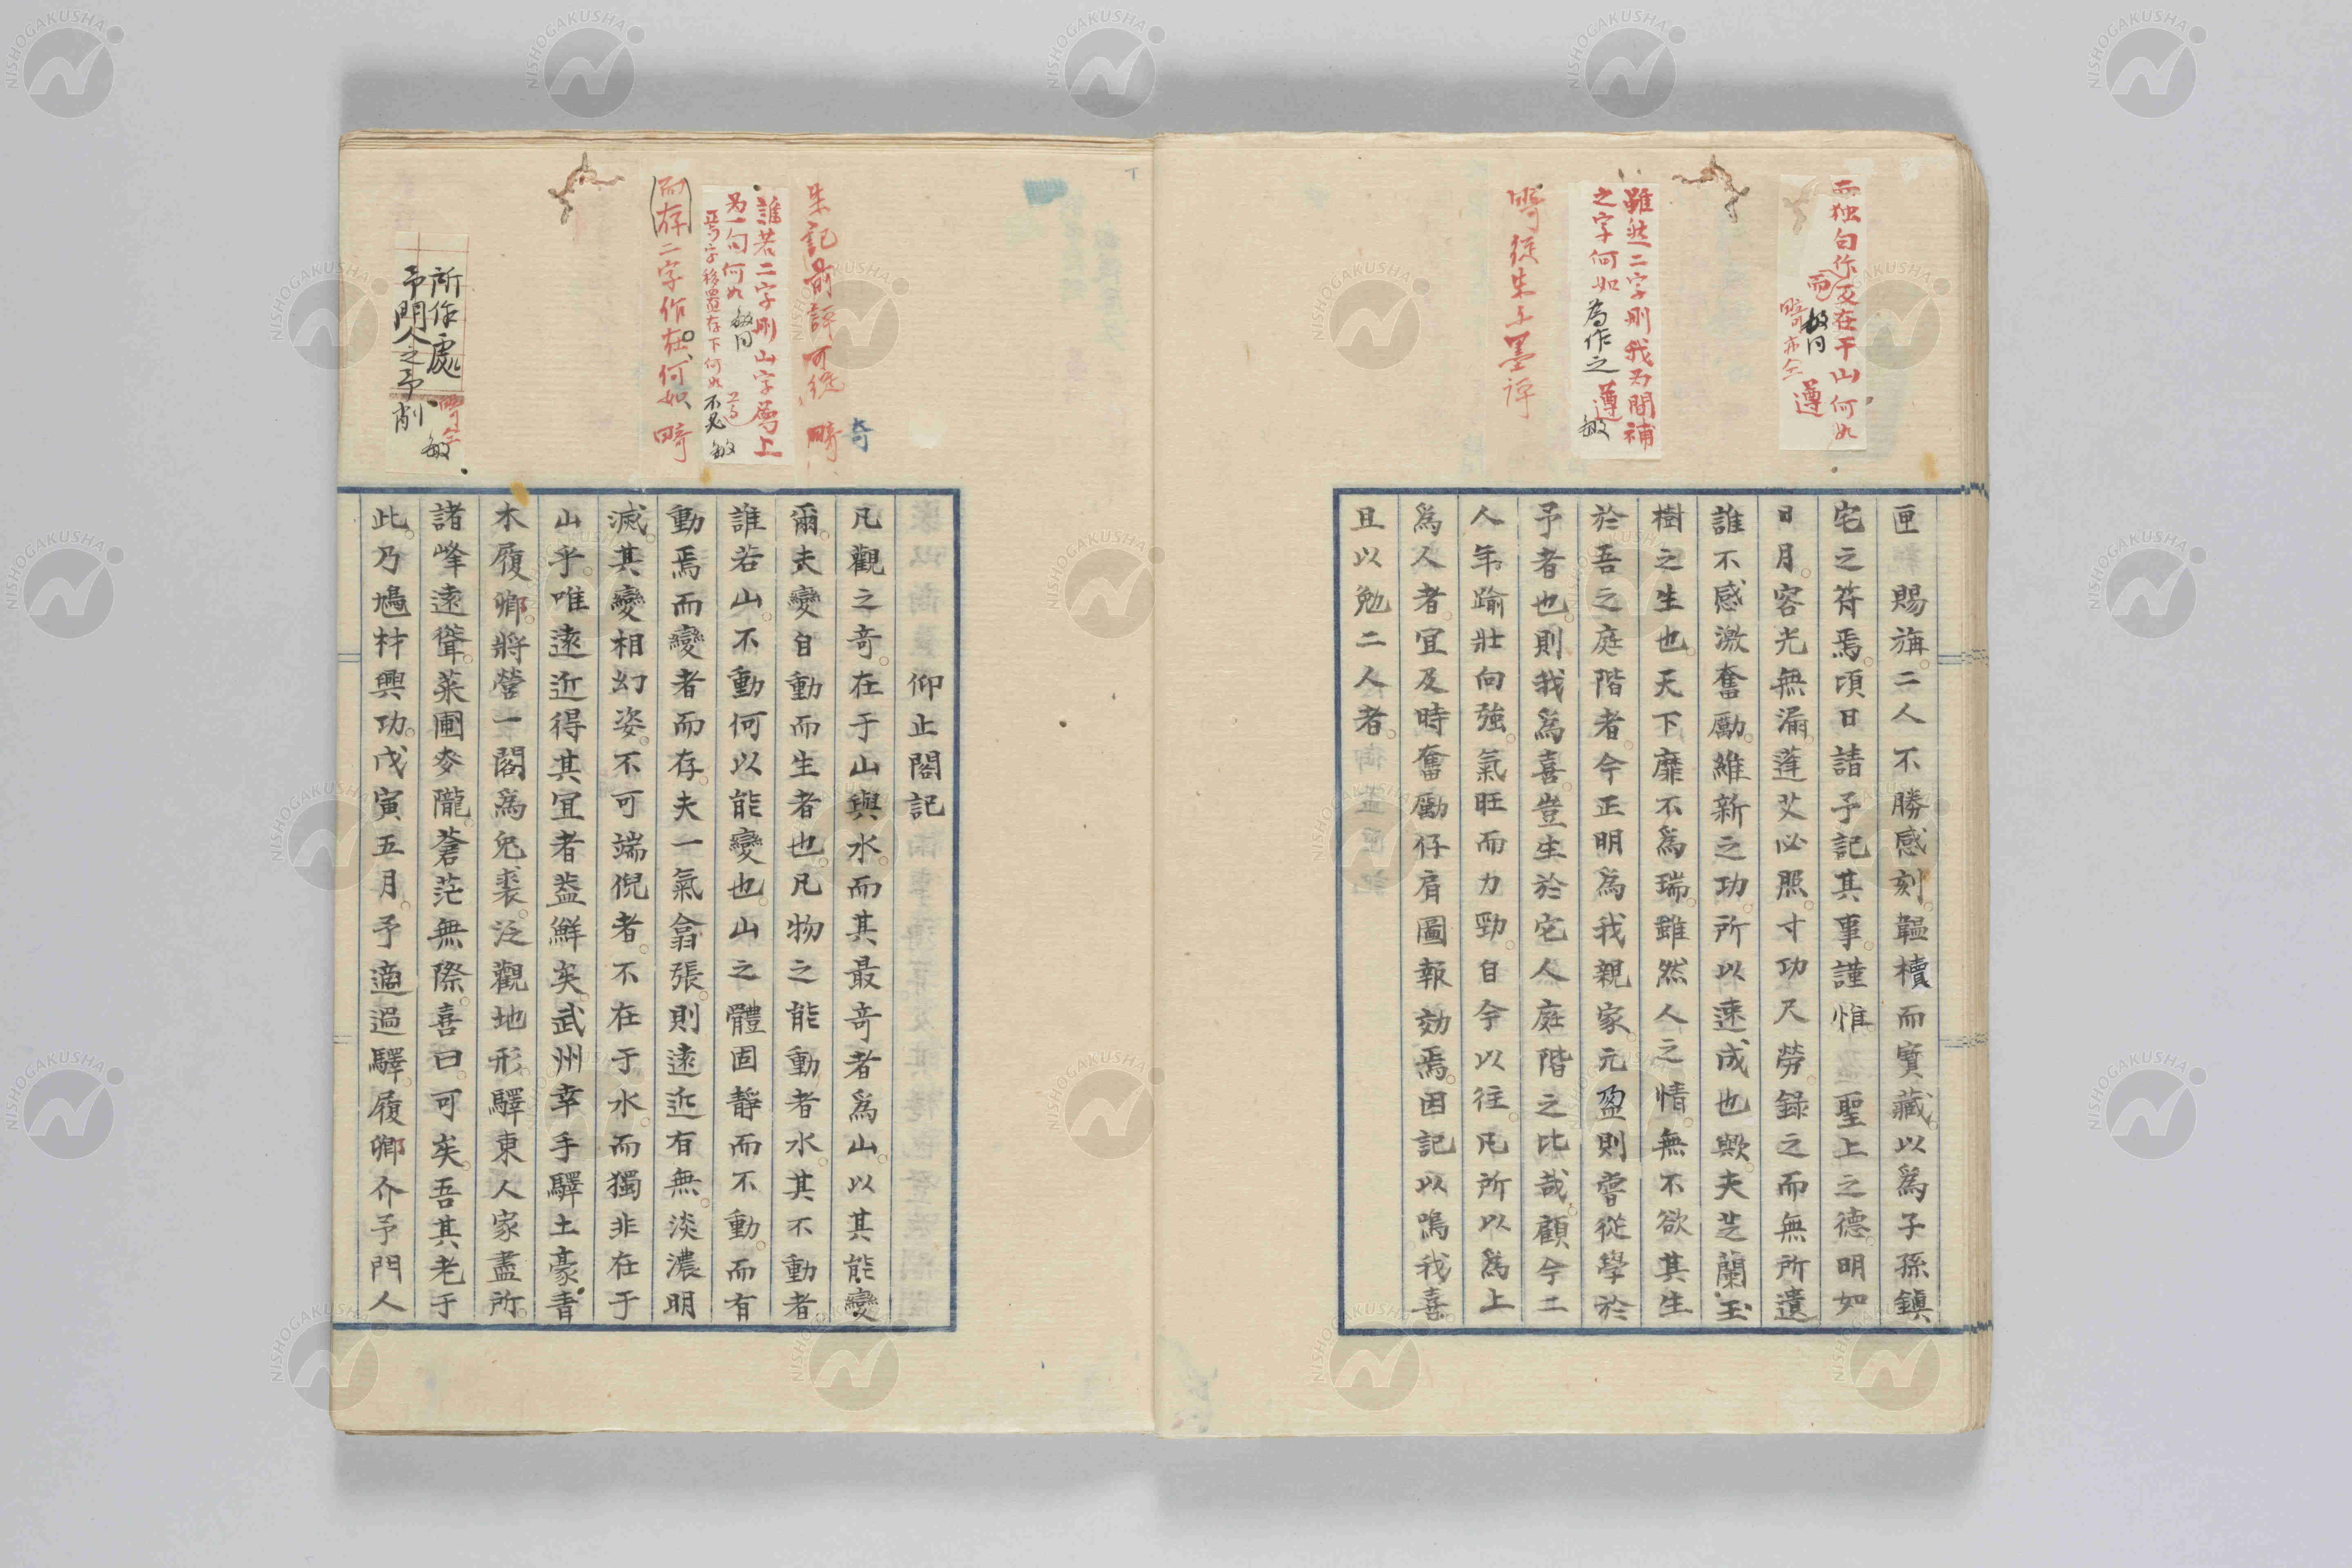 而独句作及在于山何如
而
敏同
疇亦仝
遵
雖然二字刪我為間補
之字何如
為作之
遵
敏
疇從朱子墨評
匣　賜旃二人不勝感刻韞櫝而寶藏以爲子孫鎭
宅之符焉頃日請予記其事謹惟　聖上之德明如
日月容光無漏蓬艾必照寸功尺勞録之而無所遺
誰不感激奮勵維新之功所以速成也歟夫芝蘭玉
樹之生也天下靡不爲瑞雖然人之情無不欲其生
於吾之庭階者今正明爲我親家元盈則嘗從學於
予者也則我爲喜豈生於宅人庭階之比哉顧今二
人年踰壯向強氣旺而力勁自今以往凡所以爲上
爲人者宜及時奮勵仔肩圖報効焉因記以鳴我喜
且以勉二人者
奇
朱記前評可從　疇
誰若二字刪山字屬上
為一句何如
敏同
焉字移置存下何如
不必
敏
而存二字作在何如　疇
所作處
予門人之予削
敏
仰止閣記
凡觀之奇在于山與水而其最奇者爲山以其能變
爾夫變自動而生者也凡物之能動者水其不動者
誰若山不動何以能變也山之體固靜而不動而有
動焉而變者而存夫一氣翕張則遠近有無淡濃明
滅其變相幻姿不可端倪者不在于水而獨非在于
山乎唯遠近得其宜者葢鮮矣武州幸手驛土豪青
木履卿將營一閣爲兔裘泛觀地形驛東人家盡所
諸峰遠聳菜圃麥隴蒼茫無際喜曰可矣吾其老于
此乃鳩材興功戊寅五月予適過驛履卿介予門人
NISHOGAKUSHA